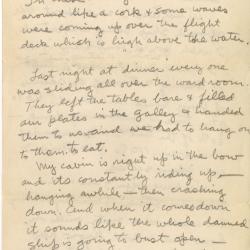 around like a cork & some waves
were coming up over the flight
deck which is high above the water.
Last night at dinner every one
was sliding all over the ward room.
They left the tables bare & filled
our plates in the galley & handed
them to us and we had to hang on
to them to eat.
My cabin is right up in the bow
and its constantly riding up —
hanging awhile — then crashing
down. And when it comes down
it sounds like the whole damned
ship is going to bust open —